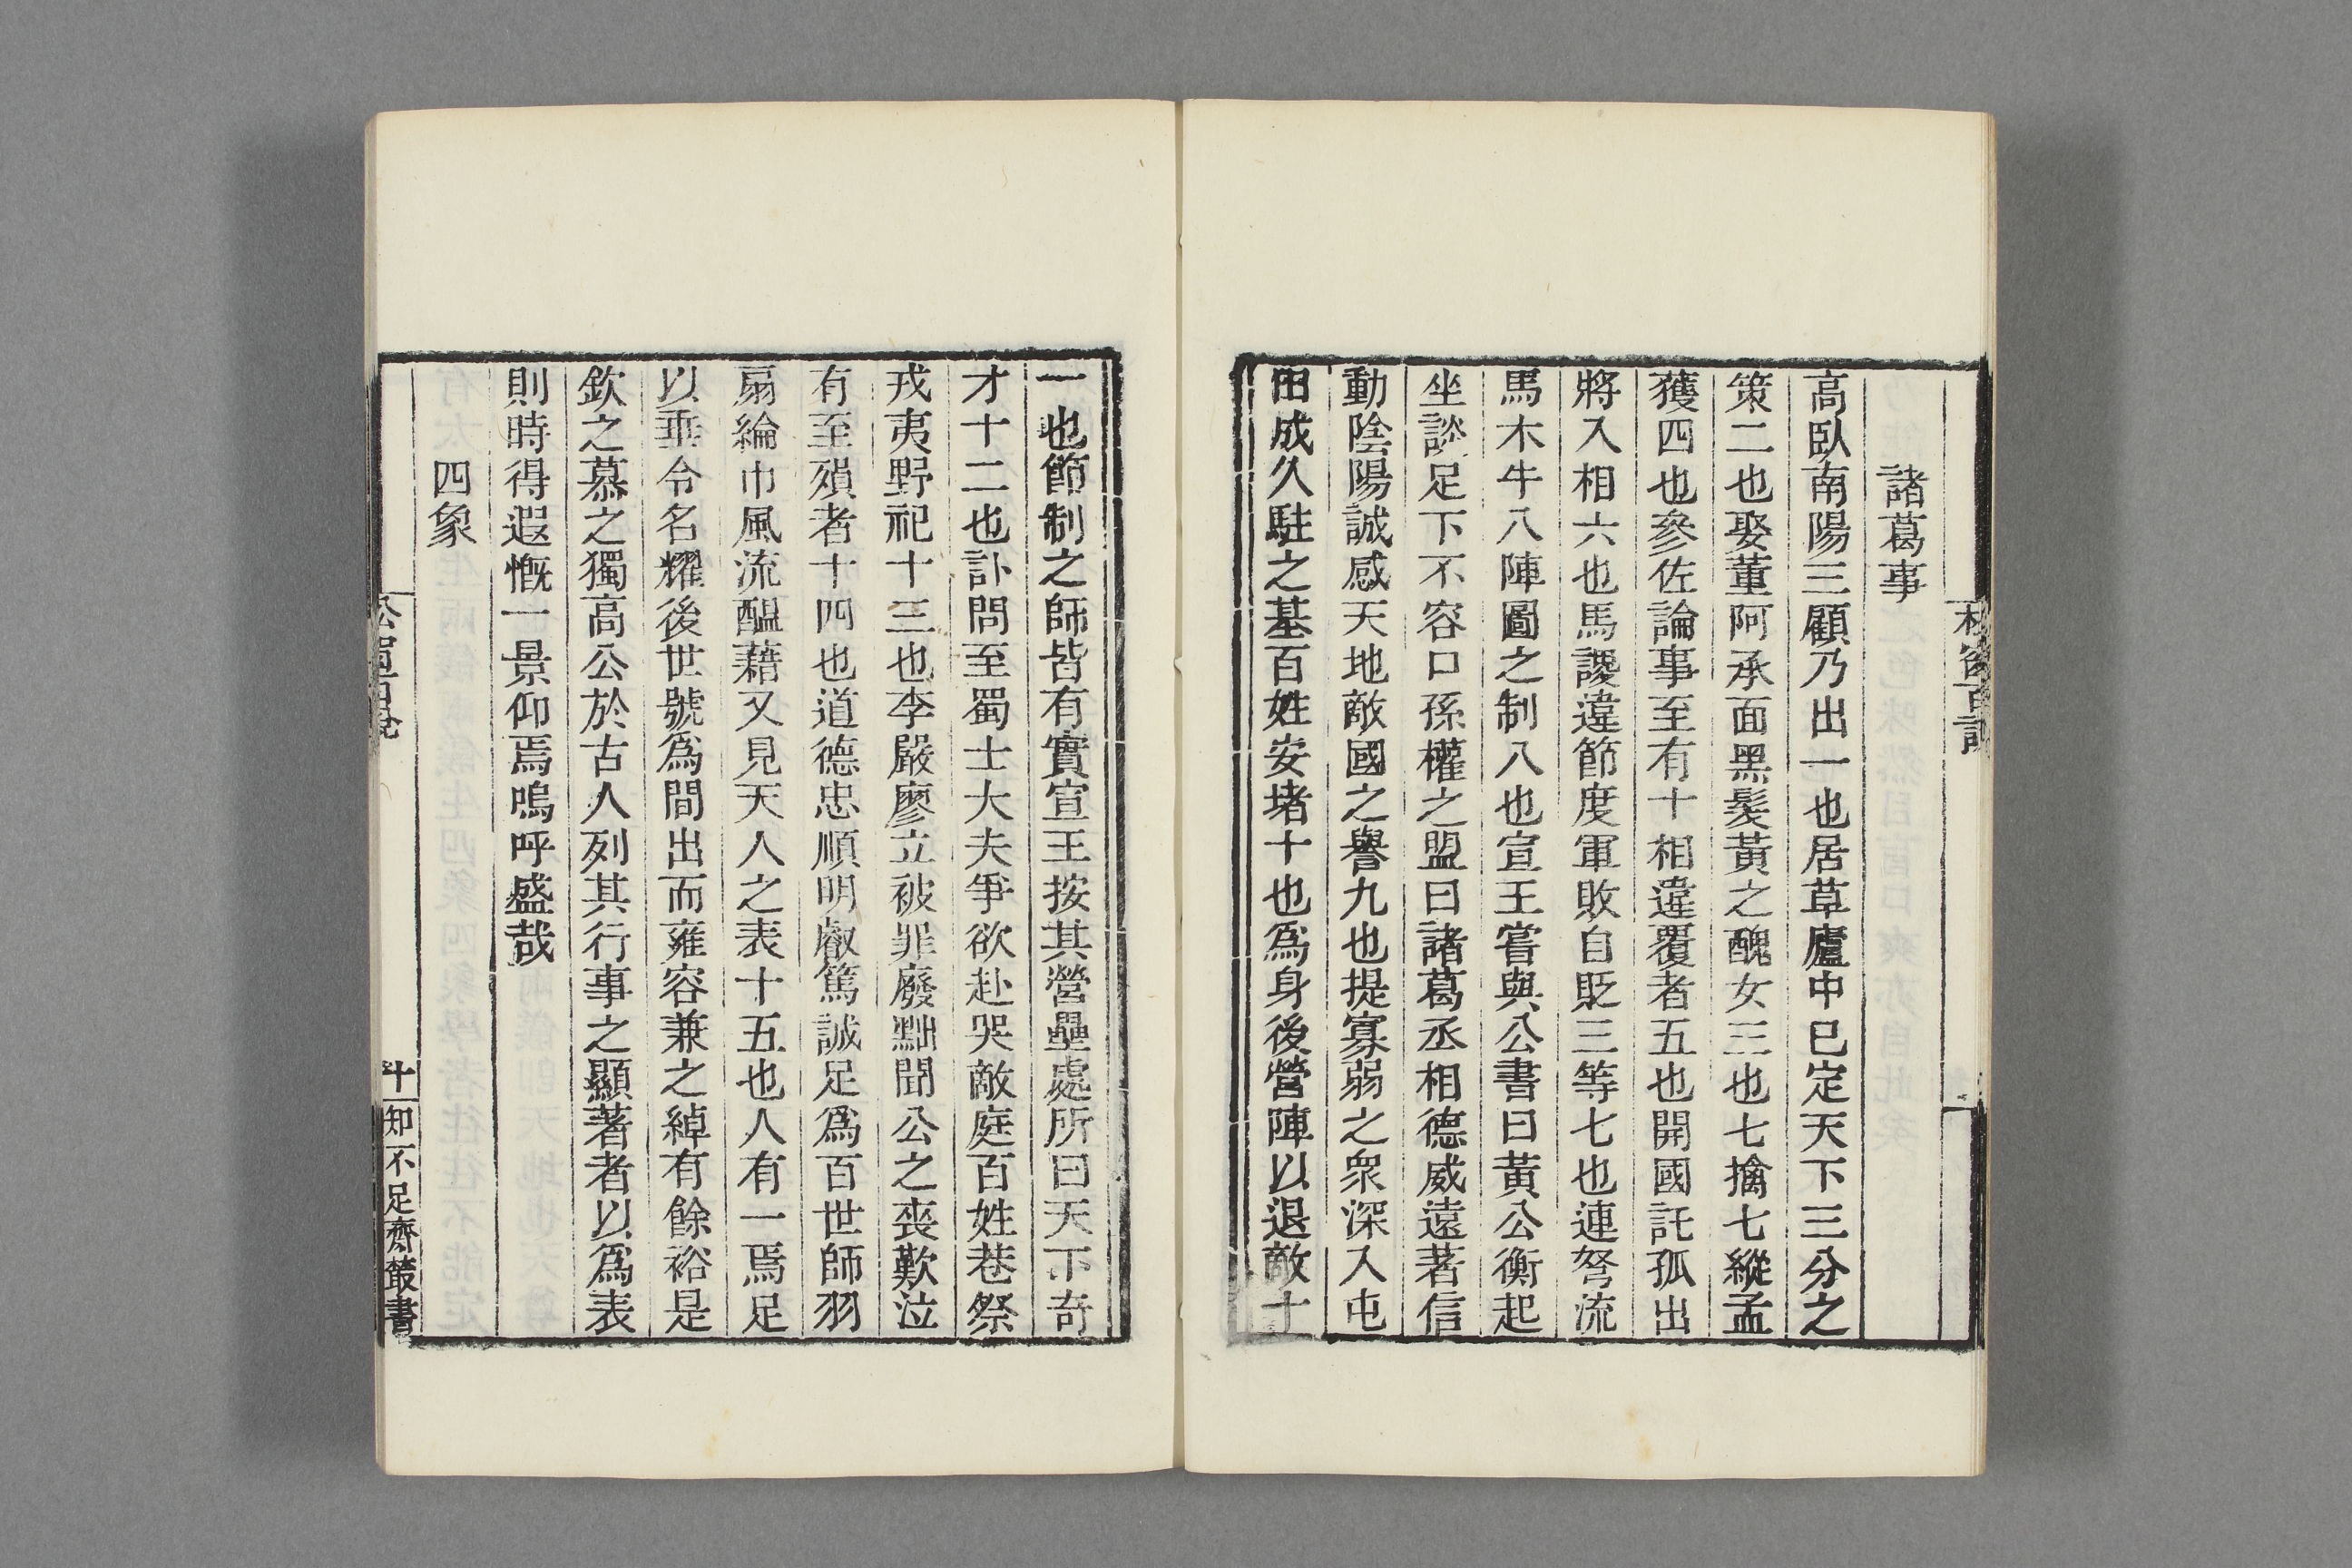 諸葛事
高臥南陽三顧乃出一也居草廬中已定天下三分之
策二也娶董阿承面黑髮黃之醜女三也七擒七縱孟
獲四也參佐論事至有十相違覆者五也開國託孤出
將入相六也馬謖違節度軍敗自貶三等七也連弩流
馬木牛八陣圖之制八也宣王嘗與公書曰黃公衡起
坐談足下不容口孫權之盟曰諸葛丞相德威遠著信
動陰陽誠感天地敵國之譽九也提寡弱之衆深入屯
田成久駐之基百姓安堵十也爲身後營陣以退敵十
一也節制之師皆有實宣王按其營壘處所曰天下奇
才十二也訃問至蜀士大夫爭欲赴哭敵庭百姓巷祭
戎夷野祀十三也李嚴廖立被罪廢黜聞公之喪歎泣
有至殞者十四也道德忠順明叡篤誠足爲百世師羽
扇綸巾風流醞藉又見天人之表十五也人有一焉足
以垂令名耀後世號爲間出而雍容兼之綽有餘裕是
欽之慕之獨高公於古人列其行事之顯著者以爲表
則時得遐慨一景仰焉嗚呼盛哉
四象
十
知不足齋叢書